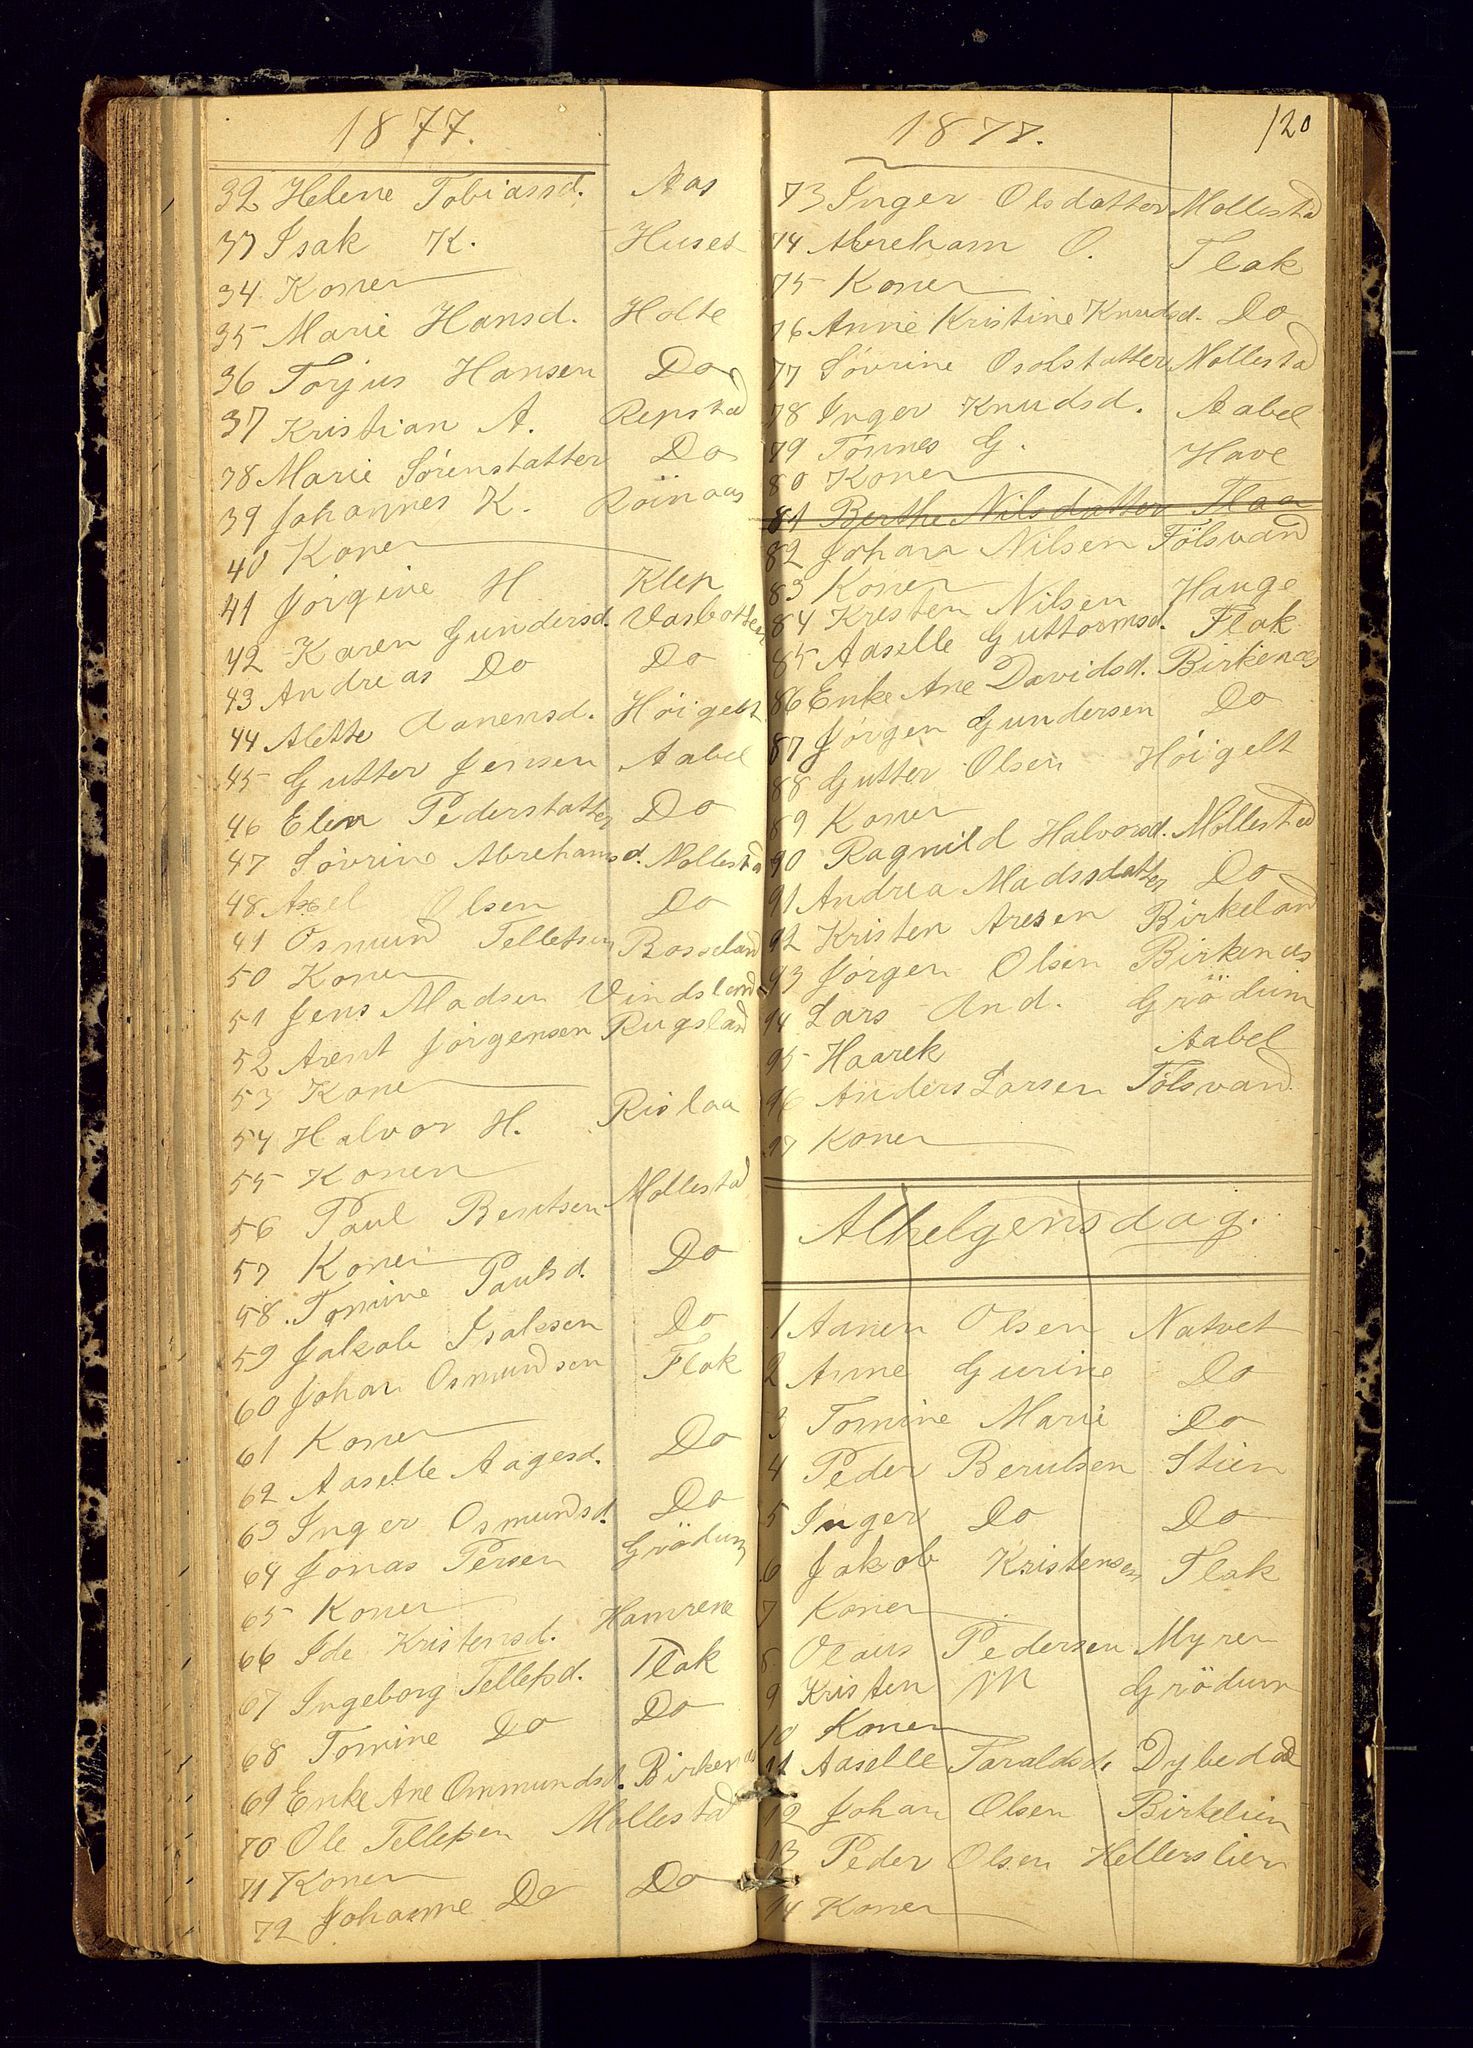 1877.
32 Helene Tobiassd. Aas
33 Isak K. Huset
34 Konen
35 Marie Hansd. Holte
36 Torjus Hansen Do
37 Kristian A. Repstad
38 Marie Sørenstatter Do
39 Johannes K. Röinaas
40 Konen
41 Jørgine H Klep
42 Karen Gundersd. Vasbotten
43 Andreas Do Do
44 Alette Aanensd. Høigelt
45 Gutter Jensen Aabel
46 Elen Pederstatter Do
47 Sövrine Abrehamsd. Mollestad
48 Axel Olsen Do
49 Osmund Tellefsen Bosseland
50 Konen
51 Jens Madsen Vindsland
52 Arent Jørgensen Rugsland
53 Kone
54 Halvor H. Rislaa
55 Konen
56 Paul Bentsen Mollestad
57 Konen Do
58. Tomine Paulsd.
59 Jakob Isaksen Do
60 Johan Osmundsen Flak
61 Konen
62 Aaselle Aagesd. Do
63 Inger Osmundsd. Do
64 Jonas Persen Grödum
65 Konen
66 Ide Kristensd. Hamrene
67 Ingeborg Tellefsd. Flak
68 Tomine Do Do
69 Enke Ane Ommundsd. Birkenes
70 Ole Tellefsen Mollestad
71 Konen
72 Johanne Do Do
1877. 120
73 Inger Olsdatter Mollestad
74 Abreham O. Flak
75 Konen
76 Anne Kristine Knudsd. Do
77 Sövrine Osolstatter Mollestad
78 Inger Knudsd. Aabel
79 Tönnes G. Have
80 Konen
81 Berthe Nilsdatter Flaa
82 Johan Nilsen Tölsvand
83 Konen
84 Kristen Nilsen Hauge
85 Aaselle Guttormsd. Flak
86 Enke Ane Davidsd. Birkenæs
87 Jørgen Gundersen Do
88 Gutter Olsen Høigelt
89 Konen
90 Ragnild Halvorsd. Mollestad
91 Andrea Madssdatter Do
92 Kristen Aresen Birkeland
93 Jørgen Olsen Birkenæs
94 Lars And. Grödum
95 Haarek Aabel
96 Anders Larsen Tölsvand
97 Konen
Alhelgensdag.
1 Aanen Olsen Natvet
2 Anne Gurine Do
3 Tomine Marie Do
4 Peder Berulsen Stien
5 Inger Do Do
6 Jakob Kristensen Flak
7 Konen
8 Olaus Pedersen Myren
9 Kristen M Grödum
10 Konen
11 Aaselle Taraldsd. Dybedal
12 Johan Olsen Birkelien
13 Peder Olsen Hellerslien
14 Konen